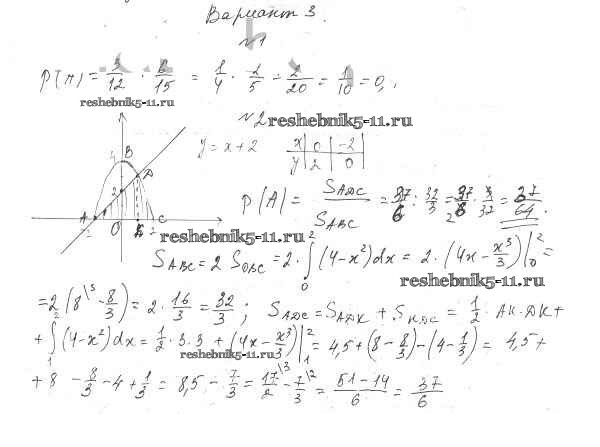 Вариант 3.
№1
P(A) = 3/12 · 6/15 = 1/4 · 2/5 = 2/20 = 1/10 = 0,1
reshebnik5-11.ru
№2
reshebnik5-11.ru
y = x + 2
x | 0 | -2
y | 2 | 0
4 B D
2
A O K C
-2 2
P(A) = S_ADC / S_ABC = 37/6 : 32/3 = 37/6 · 3/32 = 37/64.
reshebnik5-11.ru
S_ABC = 2 S_OBC = 2 · ∫₀² (4 - x²)dx = 2 · (4x - x³/3)|₀² =
reshebnik5-11.ru
= 2 (8 - 8/3) = 2 · 16/3 = 32/3 ; S_ADC = S_ADK + S_KDC = 1/2 · AK · DK +
+ ∫₁² (4 - x²) dx = 1/2 · 3 · 3 + (4x - x³/3)|₁² = 4,5 + (8 - 8/3) - (4 - 1/3) = 4,5 +
reshebnik5-11.ru
+ 8 - 8/3 - 4 + 1/3 = 8,5 - 7/3 = 17/2 - 7/3 = (51 - 14)/6 = 37/6